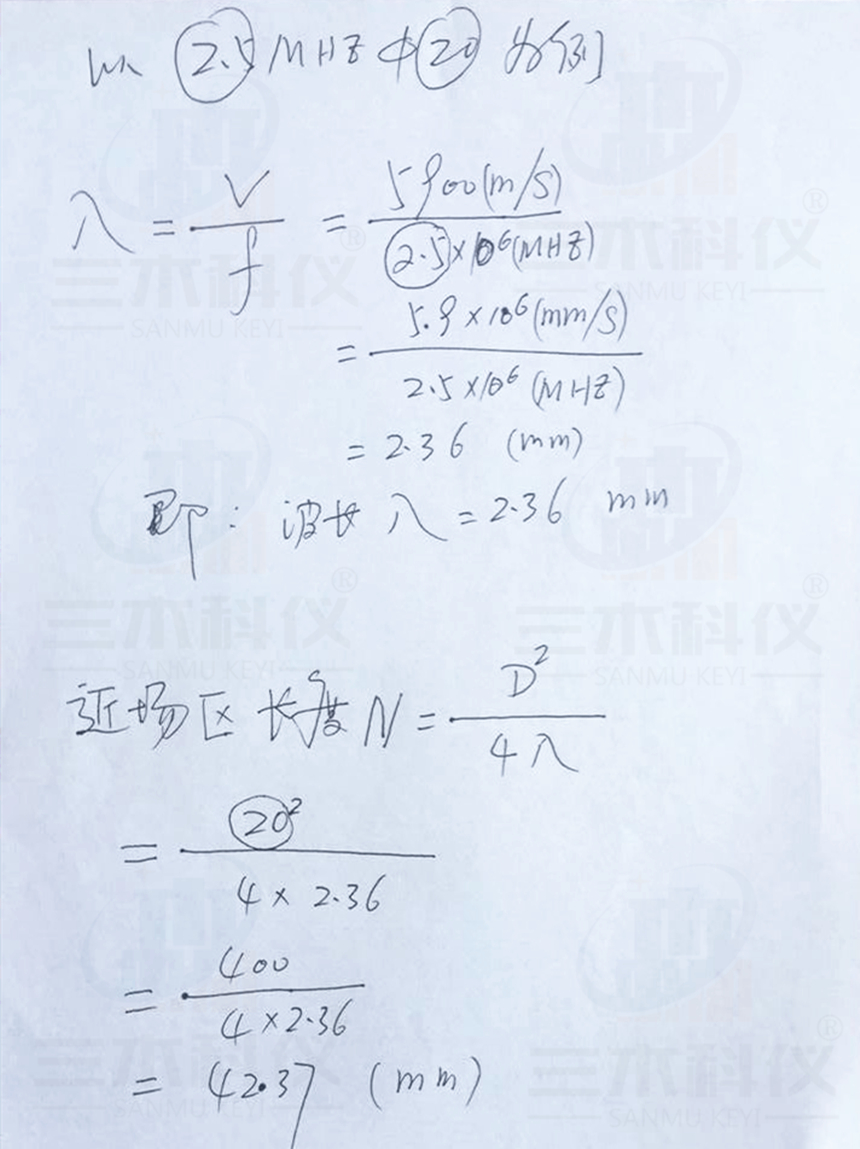 以 2.5 MHZ φ 20 为例
λ = V / f = 5900(m/s) / 2.5×10⁶(MHZ)
= 5.9×10⁶(mm/s) / 2.5×10⁶(MHZ)
= 2.36 (mm)
即: 波长 λ = 2.36 mm
近场区长度 N = D² / 4λ
= 20² / 4 × 2.36
= 400 / 4×2.36
= 42.37 (mm)
三木科仪®
SANMU KEYI
三木科仪®
SANMU KEYI
三木科仪®
SANMU KEYI
三木科仪®
SANMU KEYI
三木科仪
SANMU KEYI
三木科仪®
SANMU KEYI